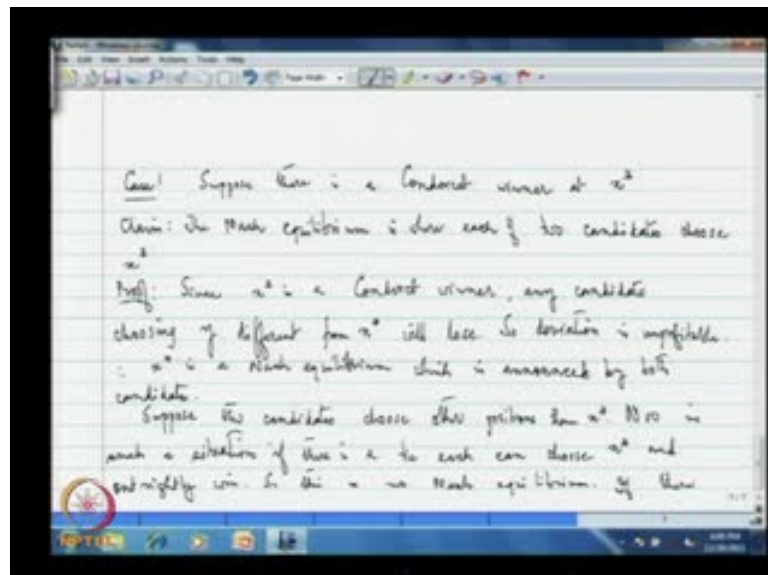 Case 1 Suppose there is a Condorcet winner at x*
Claim: The Nash equilibrium is where each of two candidates choose
x*
Proof: Since x* is a Condorcet winner, any candidate
choosing y different from x* will lose So deviation is unprofitable.
∴ x* is a Nash equilibrium which is announced by both
candidate.
Suppose two candidates choose other positions than x*. Now in
such a situation if there is a tie each can choose x* and
outrightly win. So this is no Nash equilibrium. If there
NPTEL